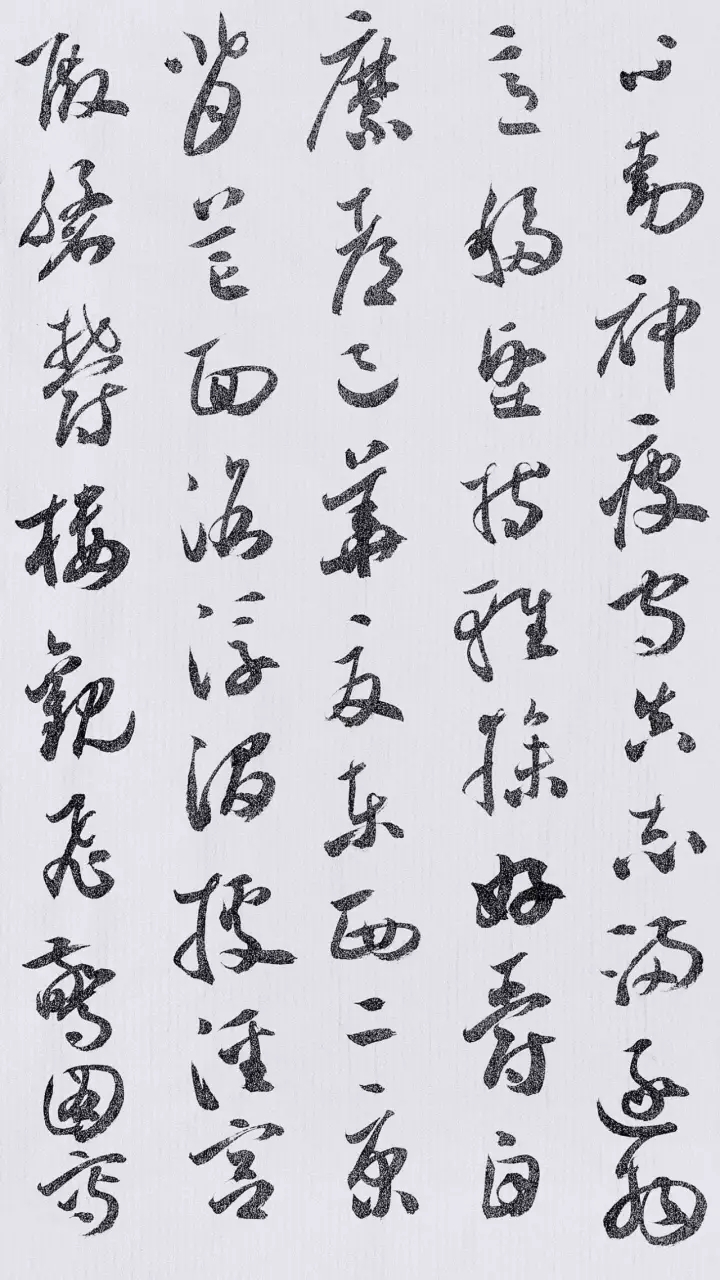 心動神疲守真志滿逐物
意移堅持雅操好爵自
縻都邑華夏東西二京
背芒面洛浮渭據涇宮
殿盤鬱樓觀飛驚圖寫